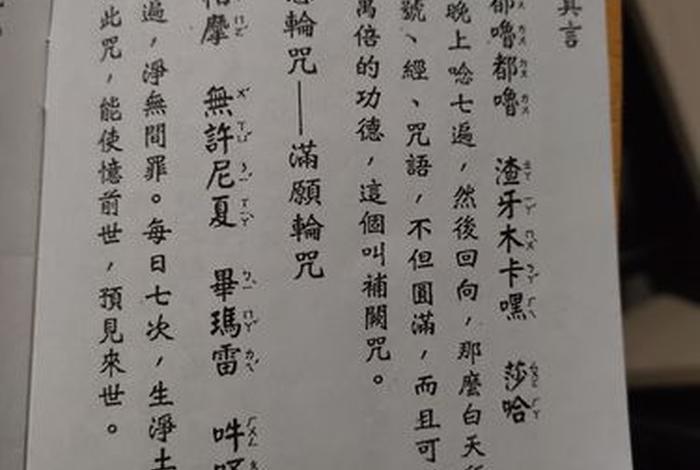 真言
都嚕都嚕 渣牙木卡嘿 莎哈
晚上唸七遍,然後回向,那麼白天
號、經、咒語,不但圓滿,而且可
萬倍的功德,這個叫補闕咒。
輪咒——滿願輪咒
摩 無許尼夏 畢瑪雷 吽
遍,淨無間罪。每日七次,生淨土
此咒,能使憶前世,預見來世。